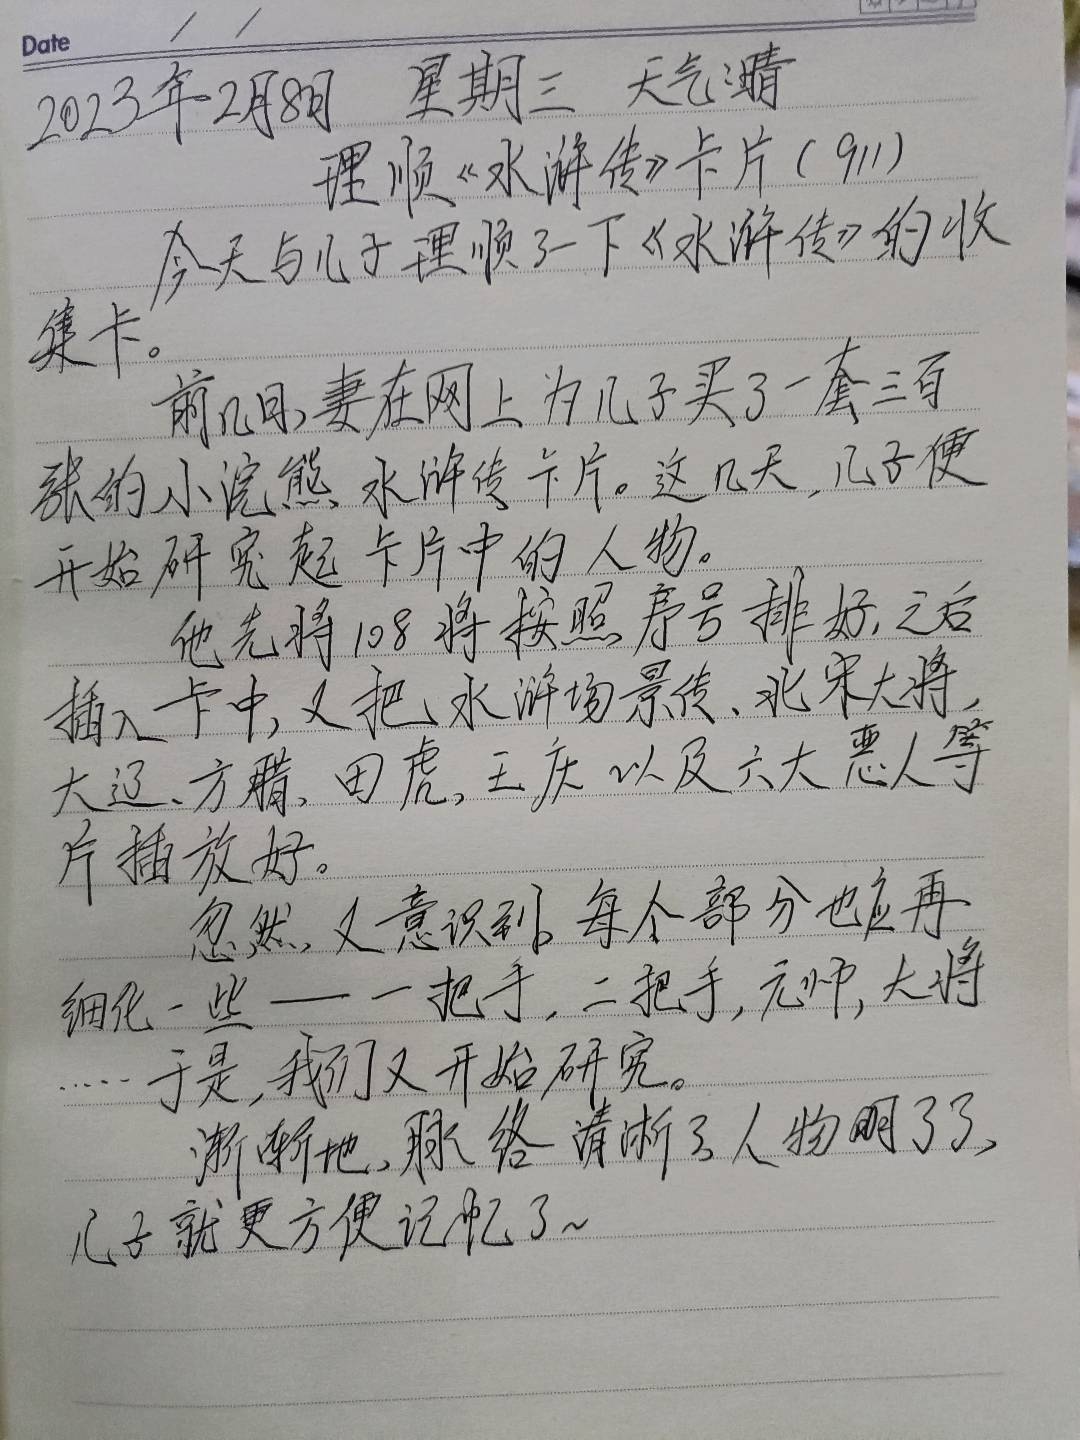 Date / /
2023年2月8日 星期三 天气:晴
理顺《水浒传》卡片(911)
今天与儿子理顺了一下《水浒传》的收
集卡。
前几日,妻在网上为儿子买了一套三百
张的小浣熊水浒传卡片。这几天,儿子便
开始研究起卡片中的人物。
他先将108将按照序号排好,之后
插入卡中,又把水浒场景传、北宋大将,
大辽、方腊、田虎,王庆以及六大恶人等
片插放好。
忽然,又意识到,每个部分也应再
细化一些——一把手,二把手,元帅,大将
……于是,我们又开始研究。
渐渐地,脉络清晰了,人物明了了,
儿子就更方便记忆了~